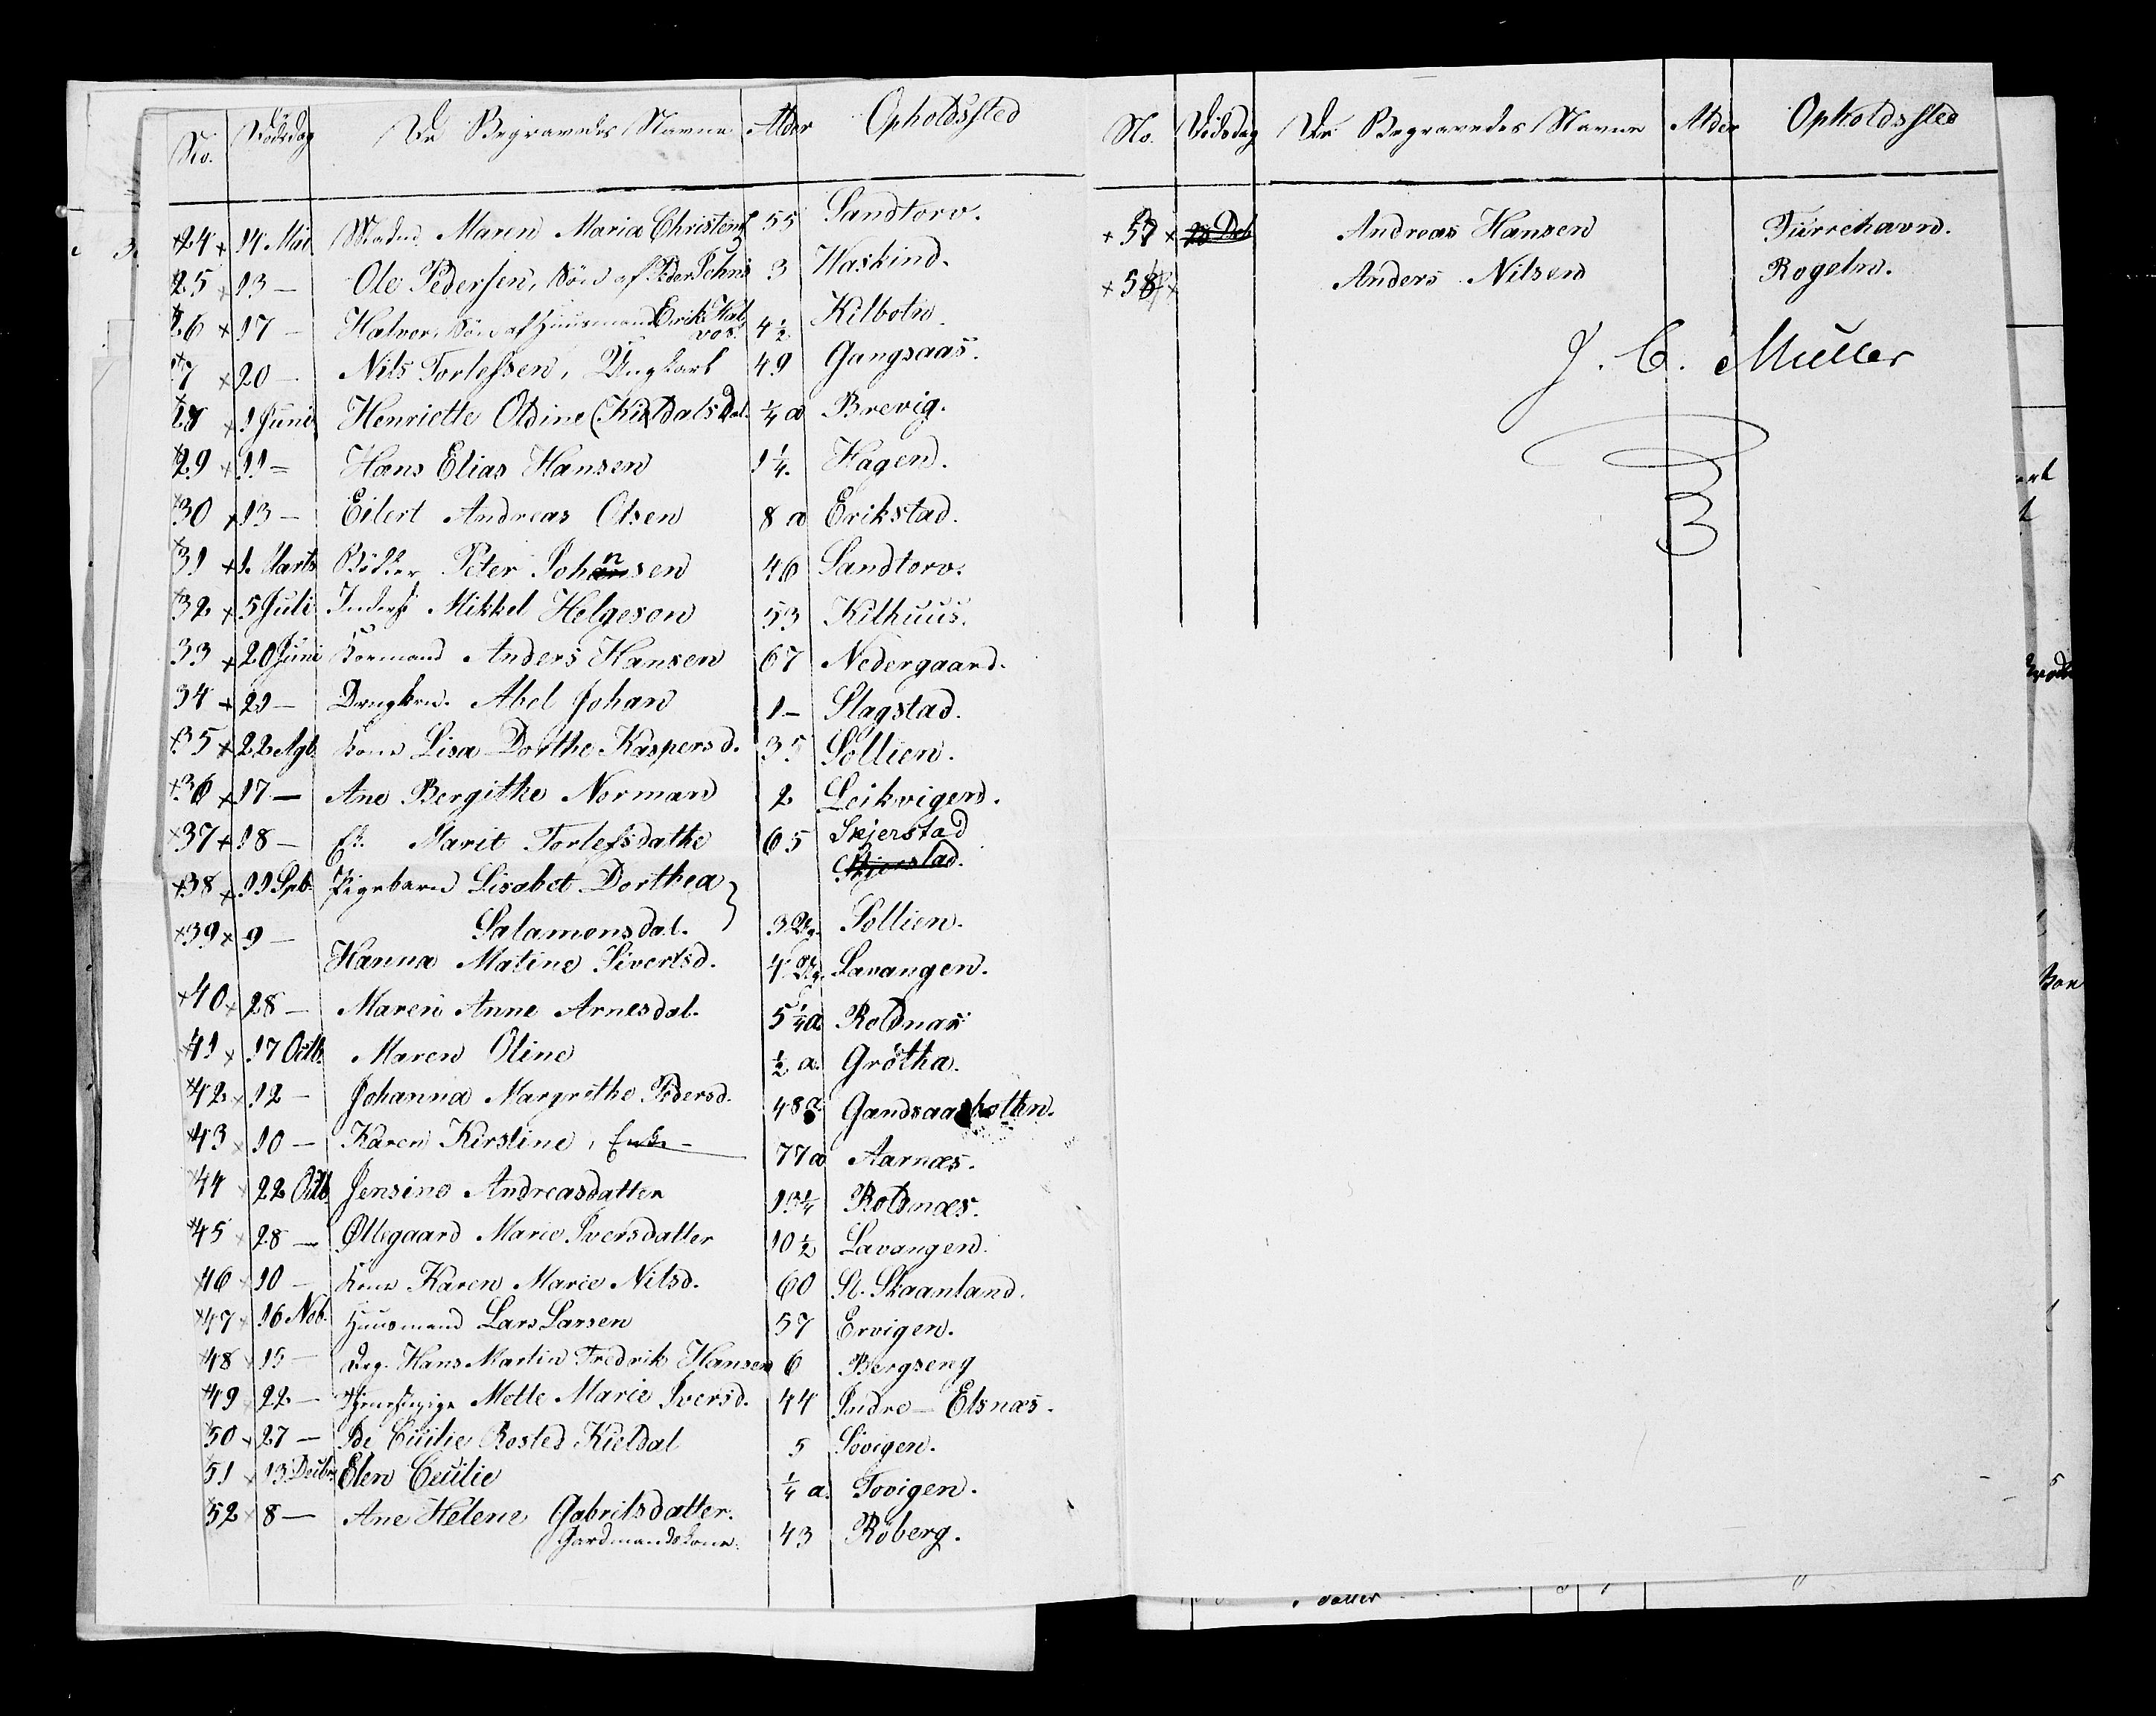 No. Dödsdag De Begravedes Navne Alder Opholdssted
24 14 Mai Madm Maren Maria Christens 55 Sandtorv.
25 13 — Ole Pedersen, Sön af Peder Johns 3 Waskind.
26 17 — Halvor, Sön af Huusmand Erik Hal
vos. 4½ Kilbotn
27 20 — Nils Torlefsen, Ungkarl 49 Gangsaas.
28 1 Juni Henriette Oldine (Kildals Dat. ¼ a Brevig.
29 11 — Hans Elias Hansen 1¼. Hagen.
30 13 — Eilert Andreas Olsen 8 a Erikstad.
31 1. Marts Peter Johnsen 46 Sandtorv.
32 5 Juli Inderst Mikkel Helgeson 53 Kilhuus.
33 20 Juni Kormand Anders Hansen 67 Nedergaard.
34 21 — Drengbrn. Abel Johan 1 — Slagstad.
35 22 Agb. Kone Lisa Dorthe Kaspersd. 35 Sollien.
36 17 — Ane Bergithe Norman 2 Leikvigen.
37 18 — Ek. Marit Torlefsdatte 65 Skjerstad
Skjerstad.
38 11 Spb. Pigebarn Lisabet Dorthea }
Salamonsdal. 3 Dg. Sollien.
39 9 — Hanna Matine Sivertsd. 4 Dg. Lavangen.
40 28 — Maren Anne Arnesdat. 5¼ a Roldnas
41 17 Octb. Maren Oline ½ a. Grötha.
42 12 — Johanna Margrethe Pedersd. 48 a Gandsaasbothn.
43 10 — Karen Kirstine, Enke — 77 a Aarnæs.
44 22 Octb. Jensine Andreasdatter 13¼ Roldnæs.
45 28 — Øllegaard Marie Iversdatter 10½ Lavangen.
46 10 — Kone Karen Marie Nilsd. 60 St. Skaanland.
47 16 Nob. Huusmand Lars Larsen 57 Ervigen.
48 15 — Drg. Hans Martin Fredrik Hansen 6 Bergseng
49 22 — Tjenestepige Mette Marie Iversd. 44 Indre — Elsnæs.
50 27 — Be Cecilie Rosted Kieldal 5 Sövigen.
51 13 Decbr. Elen Cecilie ¼ a. Tovigen.
52 8 — Ane Helene Gabrilsdatter.
Gardmandskone. 43 Röberg.
No. Dödsdag De Begravedes Navne Alder Opholdssted
57 28 Deb Andreas Hansen Türrehavn.
58 Anders Nilsen Rogeln.
J. C. Müller